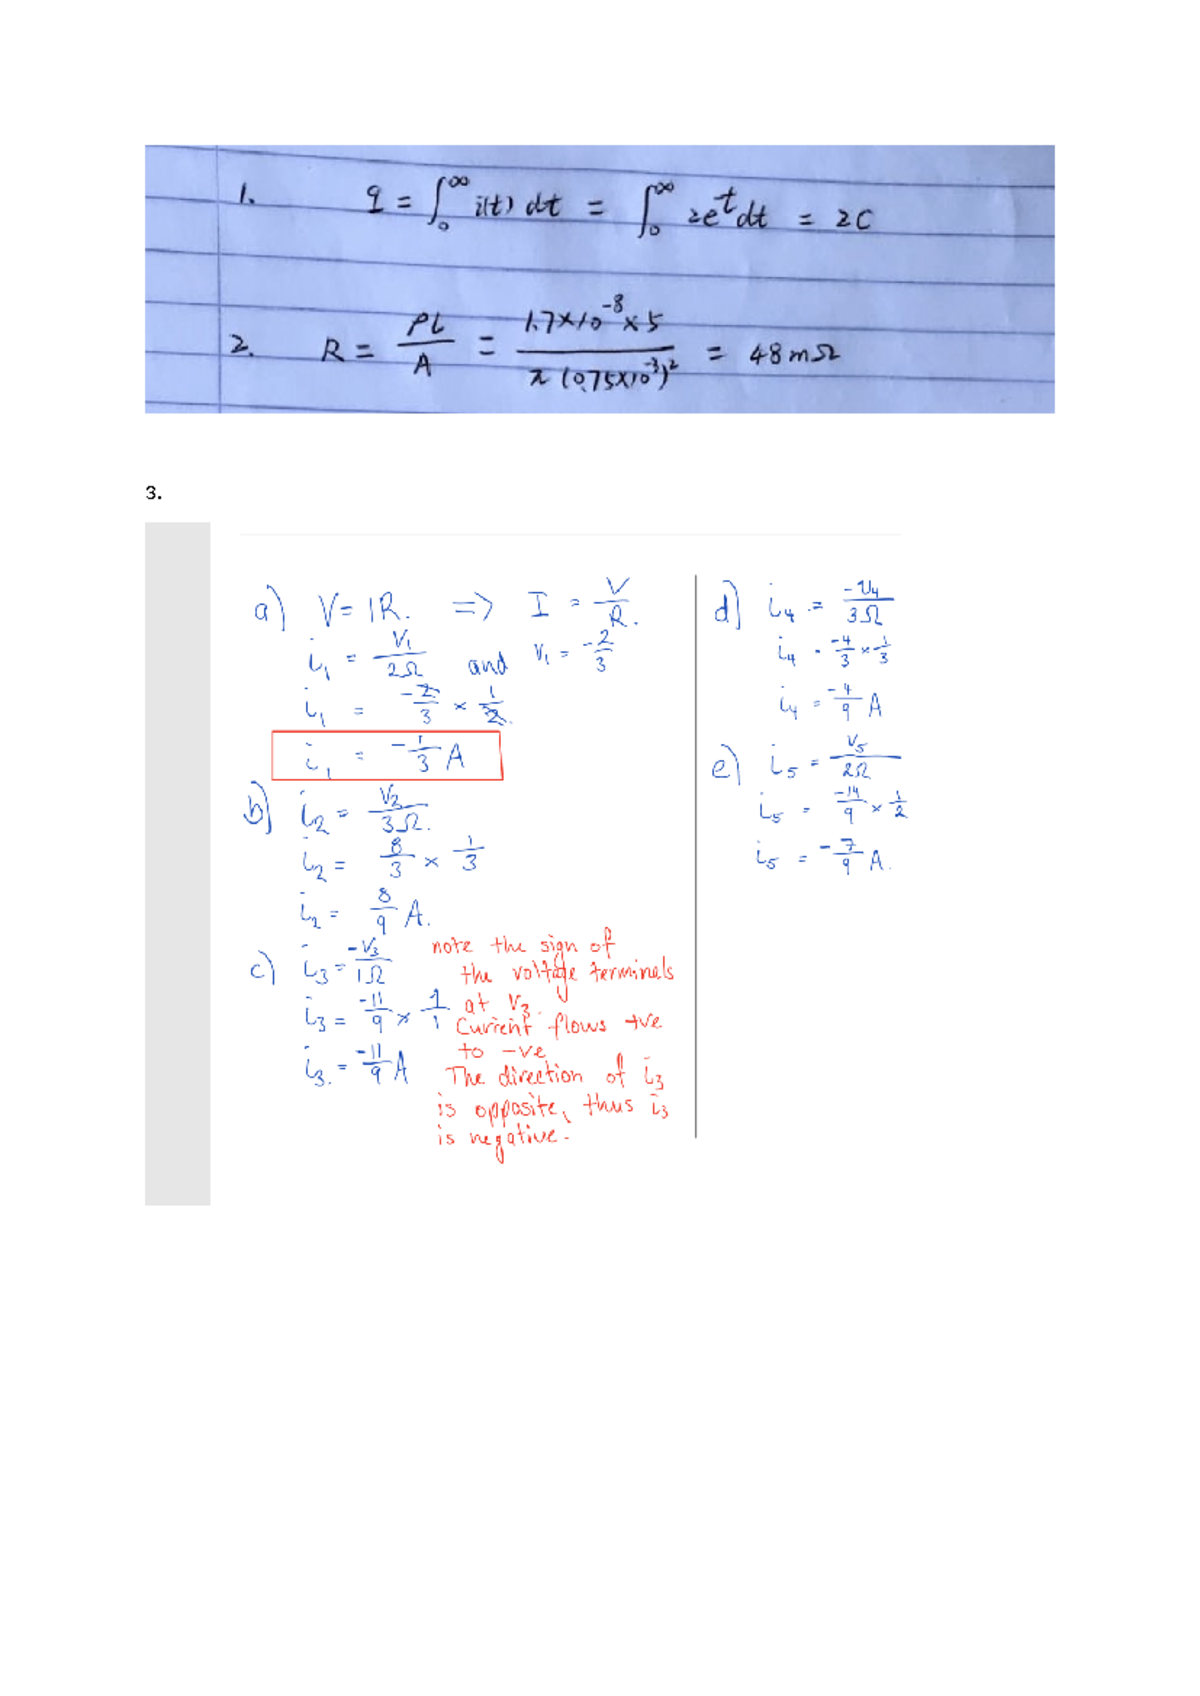 1. q = ∫₀^∞ i(t) dt = ∫₀^∞ 2e^t dt = 2C
2. R = ρL/A = 1.7×10^-8 × 5 / π (0.75×10^-3)^2 = 48 mΩ
3.
a) V = IR. => I = V/R.
i₁ = V₁/2Ω and V₁ = -2/3
i₁ = -2/3 × 1/2.
i₁ = -1/3 A
b) i₂ = V₂/3Ω.
i₂ = 8/3 × 1/3
i₂ = 8/9 A.
c) i₃ = -V₃/1Ω
i₃ = -11/9 × 1/1
i₃. = -11/9 A
note the sign of
the voltage terminals
at V₃.
Current flows +ve
to -ve
The direction of i₃
is opposite, thus i₃
is negative.
d) i₄ = -V₄/3Ω
i₄ = -4/3 × 1/3
i₄ = -4/9 A
e) i₅ = V₅/2Ω
i₅ = -14/9 × 1/2
i₅ = -7/9 A.